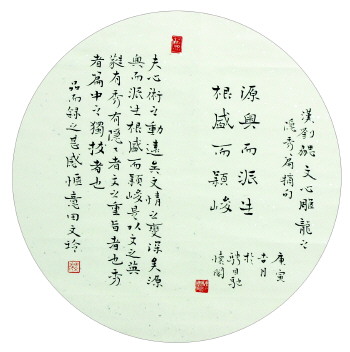 漢劉勰文心雕龍之
隱秀篇摘句
源奧而派生
根盛而穎峻
庚寅
杏月
於
夫心術之動遠矣文情之變深矣源
奧而派生根盛而穎峻是以文之英
蕤有秀有隱々者文之重旨者也秀
者篇中之獨拔者也
品而錄之甚感愜意田文玲